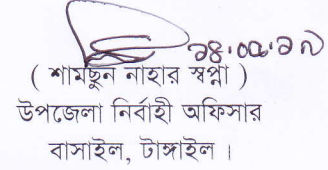 ১৪.০৫.১৭
( শামছুন নাহার স্বপ্না )
উপজেলা নির্বাহী অফিসার
বাসাইল, টাঙ্গাইল ।